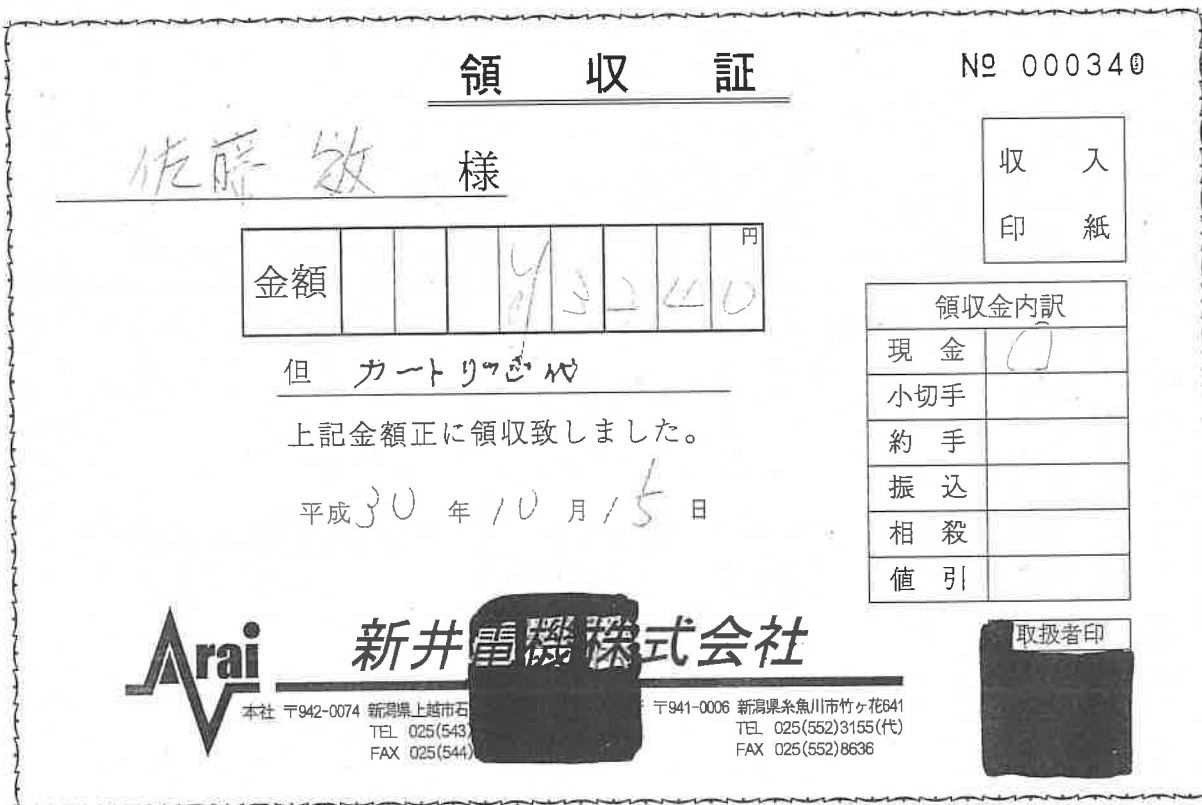 領収証
№ 000340
佐藤 敏 様
収入
印紙
金額 ¥3240 円
但 カートリッジ代
上記金額正に領収致しました。
平成30年10月15日
領収金内訳
現金
小切手
約手
振込
相殺
値引
取扱者印
Arai
新井電機株式会社
本社 〒942-0074 新潟県上越市石
TEL 025(543)
FAX 025(544)
〒941-0006 新潟県糸魚川市竹ヶ花641
TEL 025(552)3155(代)
FAX 025(552)8636